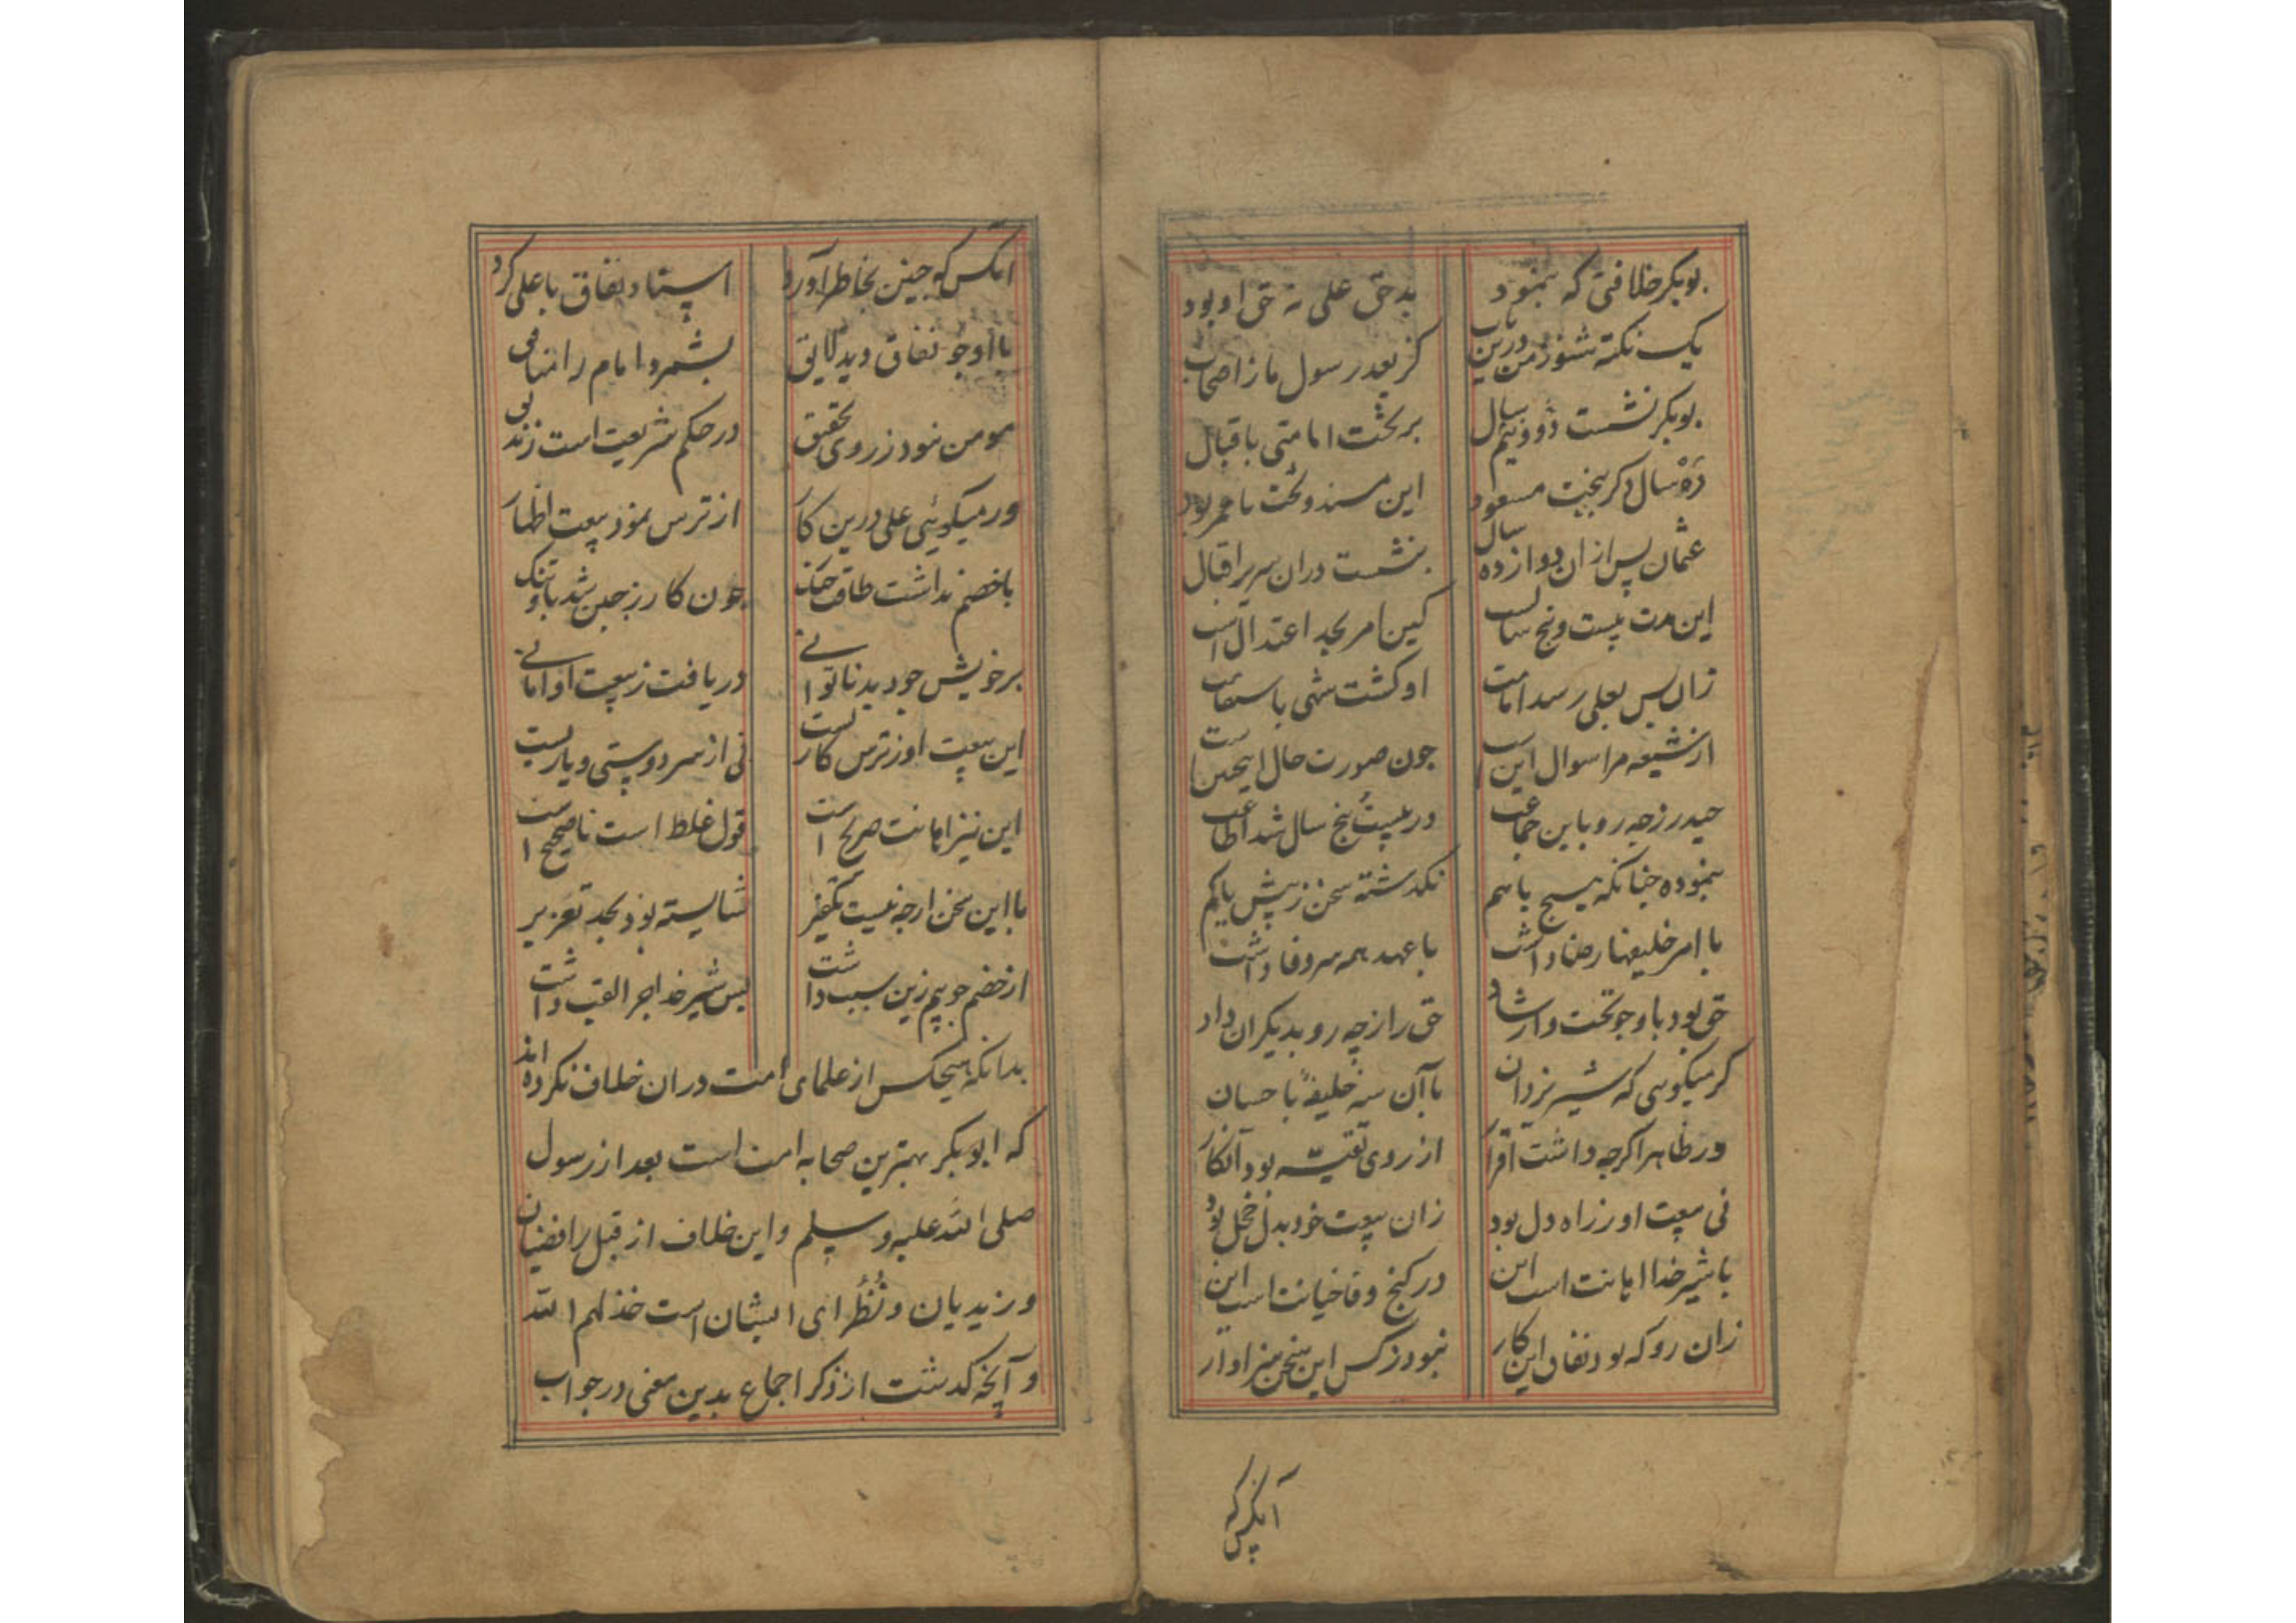 بوبکر خلافتی که بنمود بد حق علی نه حق او بود
یک نکته شنو ز من درین باب کز بعد رسول ما ز اصحاب
بوبکر نشست دو و نیم سال بر تخت امامتی باقبال
ده سال دکر ببخت مسعود این مسند و تخت با عمر بود
عثمان پس از ان دوازده سال بنشست دران سریر اقبال
این مدت بیست و پنج سالست کین امر بحد اعتدال است
زان پس بعلی رسد امامت او کشت شهی باستقامت
از شیعه مرا سوال این است جون صورت حال اینچنین است
حیدر ز چه رو باین جماعت در بیست پنج سال شد اطاعت
بنموده چنانکه هیچ با هم نکذشته سخن ز بیش یا کم
با امر خلیفها رضا داشت با عهد همه سر وفا داشت
حق بود باو چو تخت و ارشاد حق را ز چه رو بدیکران داد
کر میکویی که شیر یزدان با آن سه خلیفه با حسان
در ظاهر اکرچه داشت اقرار از روی تقیه بود آنکار
نی بیعت او ز راه دل بود زان بیعت خود بدل خجل بود
با شیر خدا اهانت است این در کنج وفا خیانت است این
زان رو که بود نفاق این کار نبود ز کس این سخن سزاوار
آنکس که
انکس که چنین بخاطر آورد اسناد نفاق با علی کرد
با او چو نفاق دید لایق بشمرد امام را منافق
مومن نبود ز روی تحقیق در حکم شریعت است زندیق
ور میکوئی علی درین کار از ترس نمود بیعت اظهار
با خصم نداشت طاقت جنک چون کار ز جبن شد باو تنک
بر خویش چو دید ناتوانی دریافت ز بیعت او امانی
این بیعت او ز ترس کاریست نی از سر دوستی و یاریست
این نیز اهانت صریح است قول غلط است ناصحیح است
با این سخن ارچه نیست تکفیر شایسته بود بحد تعزیر
از خصم چو بیم زین سبب داشت پس شیر خدا چرا لقب داشت
بدانکه هیچکس از علمای امت دران خلاف نکرده اند
که ابوبکر بهترین صحابه امت است بعد از رسول
صلی الله علیه و سلم و این خلاف از قبل رافضیان
و زیدیان و نظرای ایشان است خذلهم الله
و آنچه کدشت از ذکر اجماع بدین معنی در جواب